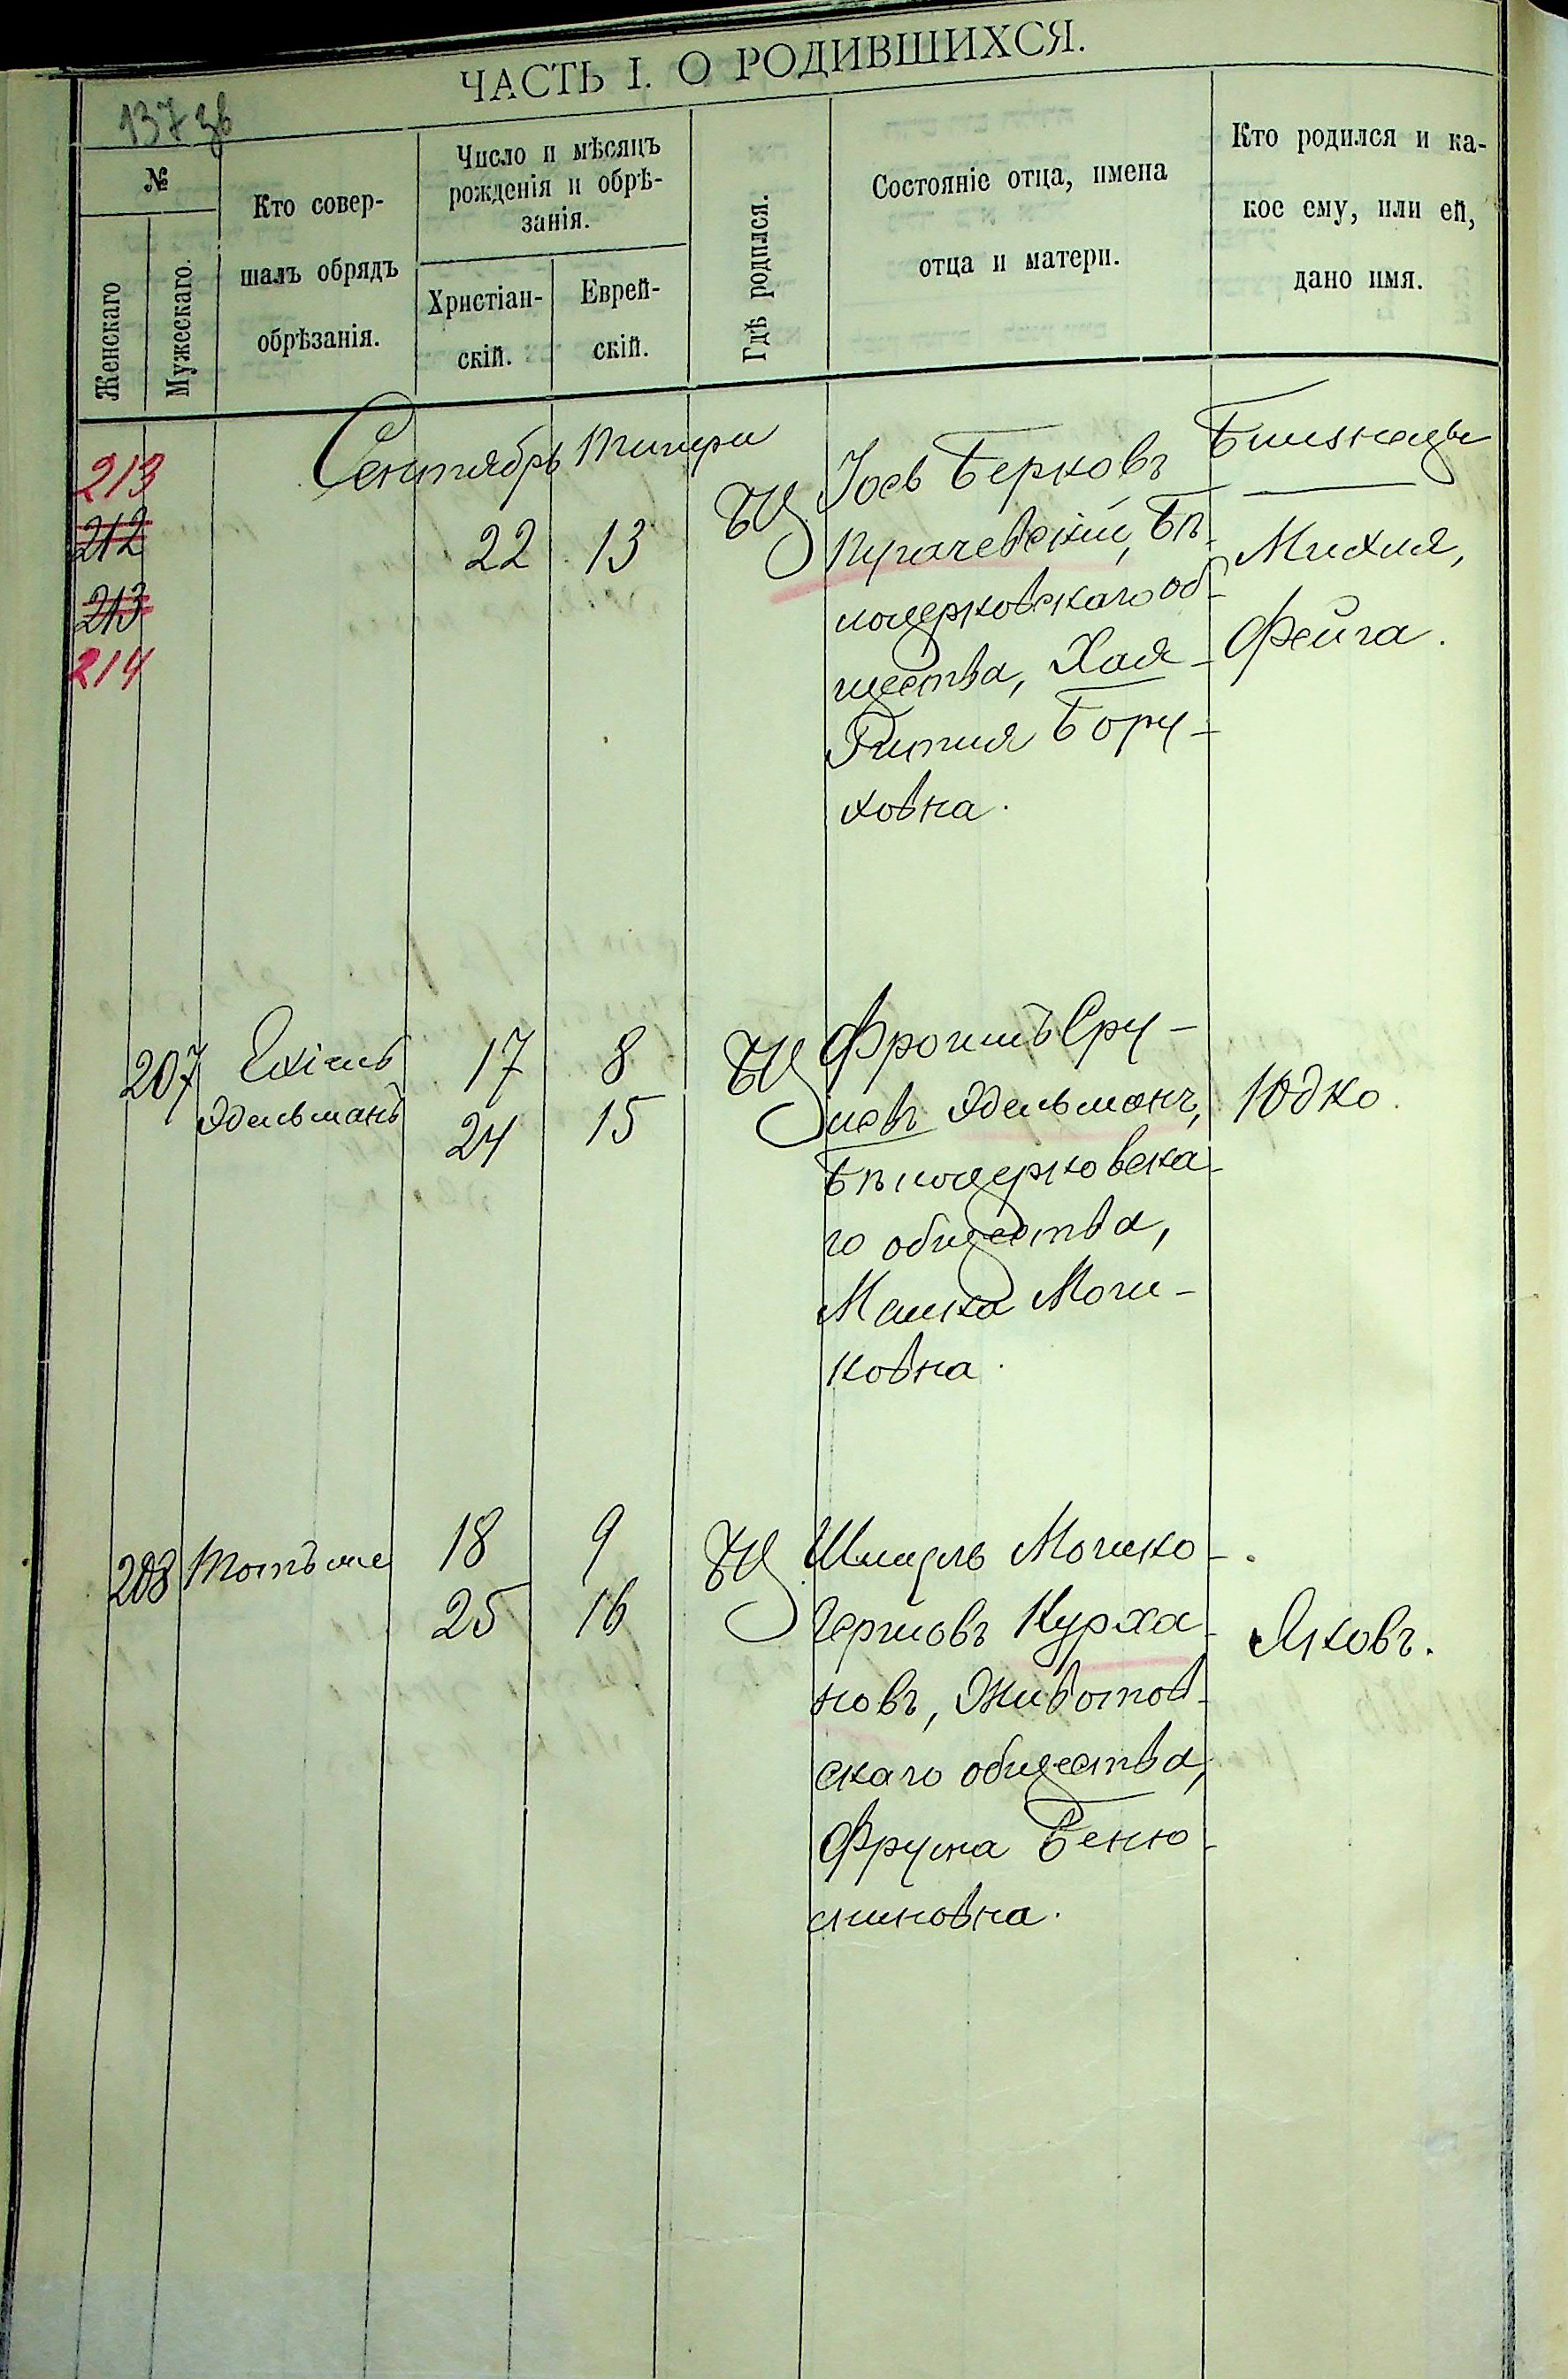 ЧАСТЬ I. О РОДИВШИХСЯ.
137 зв
№
Женскаго
Мужескаго.
Кто совер-
шалъ обрядъ
обрѣзанія.
Число и мѣсяцъ
рожденія и обрѣ-
занія.
Христіан-
скій.
Еврей-
скій.
Гдѣ родился.
Состояніе отца, имена
отца и матери.
Кто родился и ка-
кое ему, или ей,
дано имя.
Сентябрь Тишри
213
212
213
214
22 13
БЦ
Іось Берковъ
Пугачевскій, Бѣ-
лоцерковскаго об-
щества, Хая-
Гитля Бору-
ховна.
Близнецы
Михля,
Фейга.
207
Ехіель
Эдельманъ
17 8
24 15
БЦ
Фроимъ Сру-
левъ Эдельманъ,
Бѣлоцерковска-
го общества,
Малка Мош-
ковна.
Юдко.
208
Тотъ же
18 9
25 16
БЦ
Шмуль Мошко-
Гершовъ Курха-
новъ, Животов-
скаго общества,
Фрума Беню-
миновна.
Яковъ.